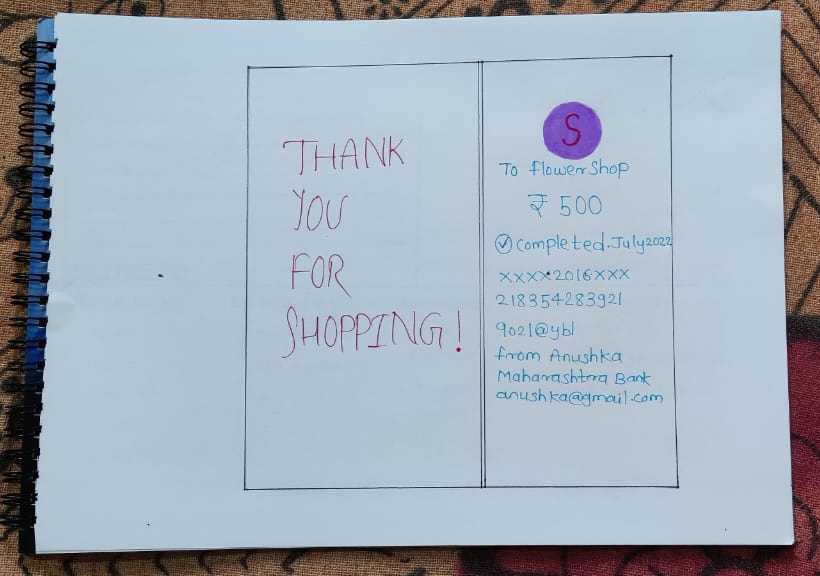 THANK
YOU
FOR
SHOPPING!
S
To flowerShop
₹ 500
completed.July2022
xxxx2016xxx
218354283921
9021@ybl
from Anushka
Maharashtra Bank
anushka@gmail.com